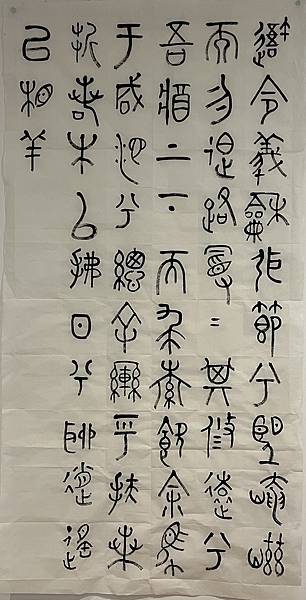 吾令羲龢弭節兮望崦嵫
而勿迫路曼〻其修遠兮
吾將上下而求索飲余馬
于咸池兮總余轡乎扶桑
折若木以拂日兮聊逍遙
以相羊